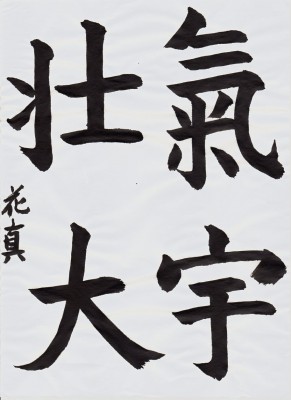 氣宇
壮大
花真